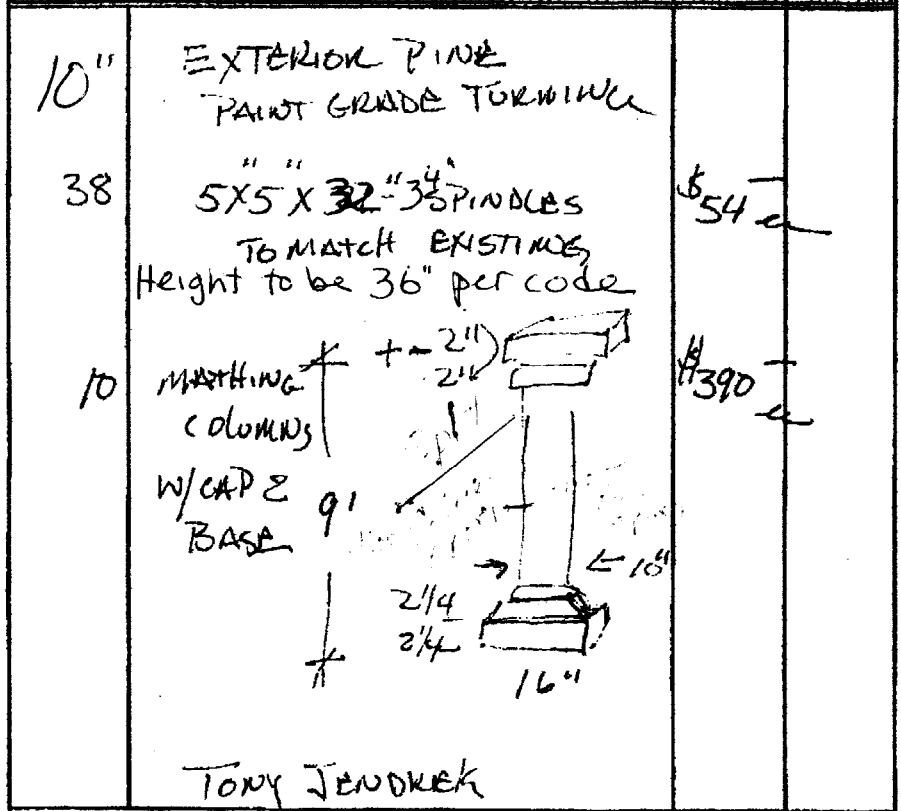 10" EXTERIOR PINE
PAINT GRADE TURNING
38 5"X5"X 32"-34" SPINDLES $54 ea
TO MATCH EXISTING
Height to be 36" per code
+- 2"
2"
10 MATHING $390 ea
COLUMNS
W/CAP &
BASE
9'
10"
2 1/4
2 1/4
16"
TONY JENDREK